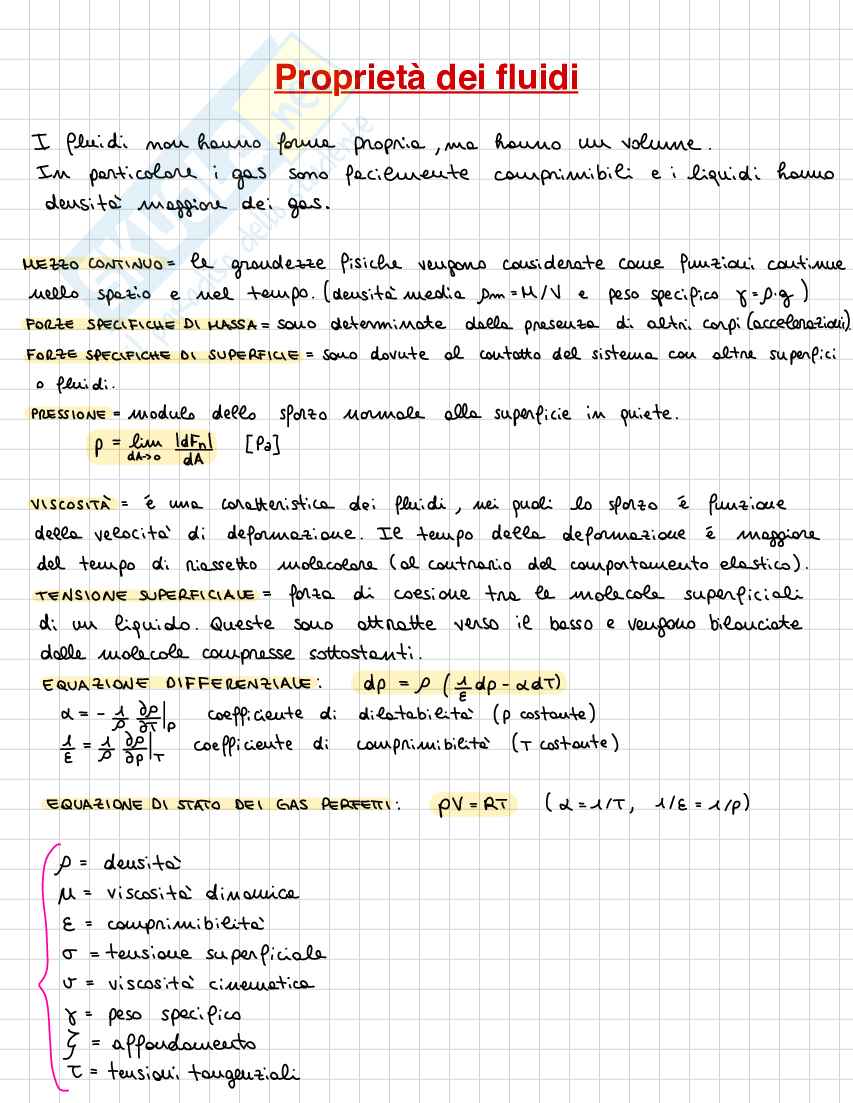 Proprietà dei fluidi
I fluidi non hanno forma propria, ma hanno un volume.
In particolare i gas sono facilmente comprimibili e i liquidi hanno
densità maggiore dei gas.
MEZZO CONTINUO = le grandezze fisiche vengono considerate come funzioni continue
nello spazio e nel tempo. (densità media ρm = M/V e peso specifico γ = ρ·g)
FORZE SPECIFICHE DI MASSA = sono determinate dalla presenza di altri corpi (accelerazioni)
FORZE SPECIFICHE DI SUPERFICIE = sono dovute al contatto del sistema con altre superfici
o fluidi.
PRESSIONE = modulo dello sforzo normale alla superficie in quiete.
p = lim dA->0 |dFn|/dA [Pa]
VISCOSITÀ = é una caratteristica dei fluidi, nei quali lo sforzo é funzione
della velocità di deformazione. Il tempo della deformazione é maggiore
del tempo di riassetto molecolare (al contrario del comportamento elastico).
TENSIONE SUPERFICIALE = forza di coesione tra le molecole superficiali
di un liquido. Queste sono attratte verso il basso e vengono bilanciate
dalle molecole compresse sottostanti.
EQUAZIONE DIFFERENZIALE: dρ = ρ (1/ε dp - αdT)
α = - 1/ρ ∂ρ/∂T|p coefficiente di dilatabilità (p costante)
1/ε = 1/ρ ∂ρ/∂p|T coefficiente di comprimibilità (T costante)
EQUAZIONE DI STATO DEI GAS PERFETTI: pV = RT (α = 1/T, 1/ε = 1/p)
ρ = densità
μ = viscosità dinamica
ε = comprimibilità
σ = tensione superficiale
υ = viscosità cinematica
γ = peso specifico
ζ = affondamento
τ = tensioni tangenziali